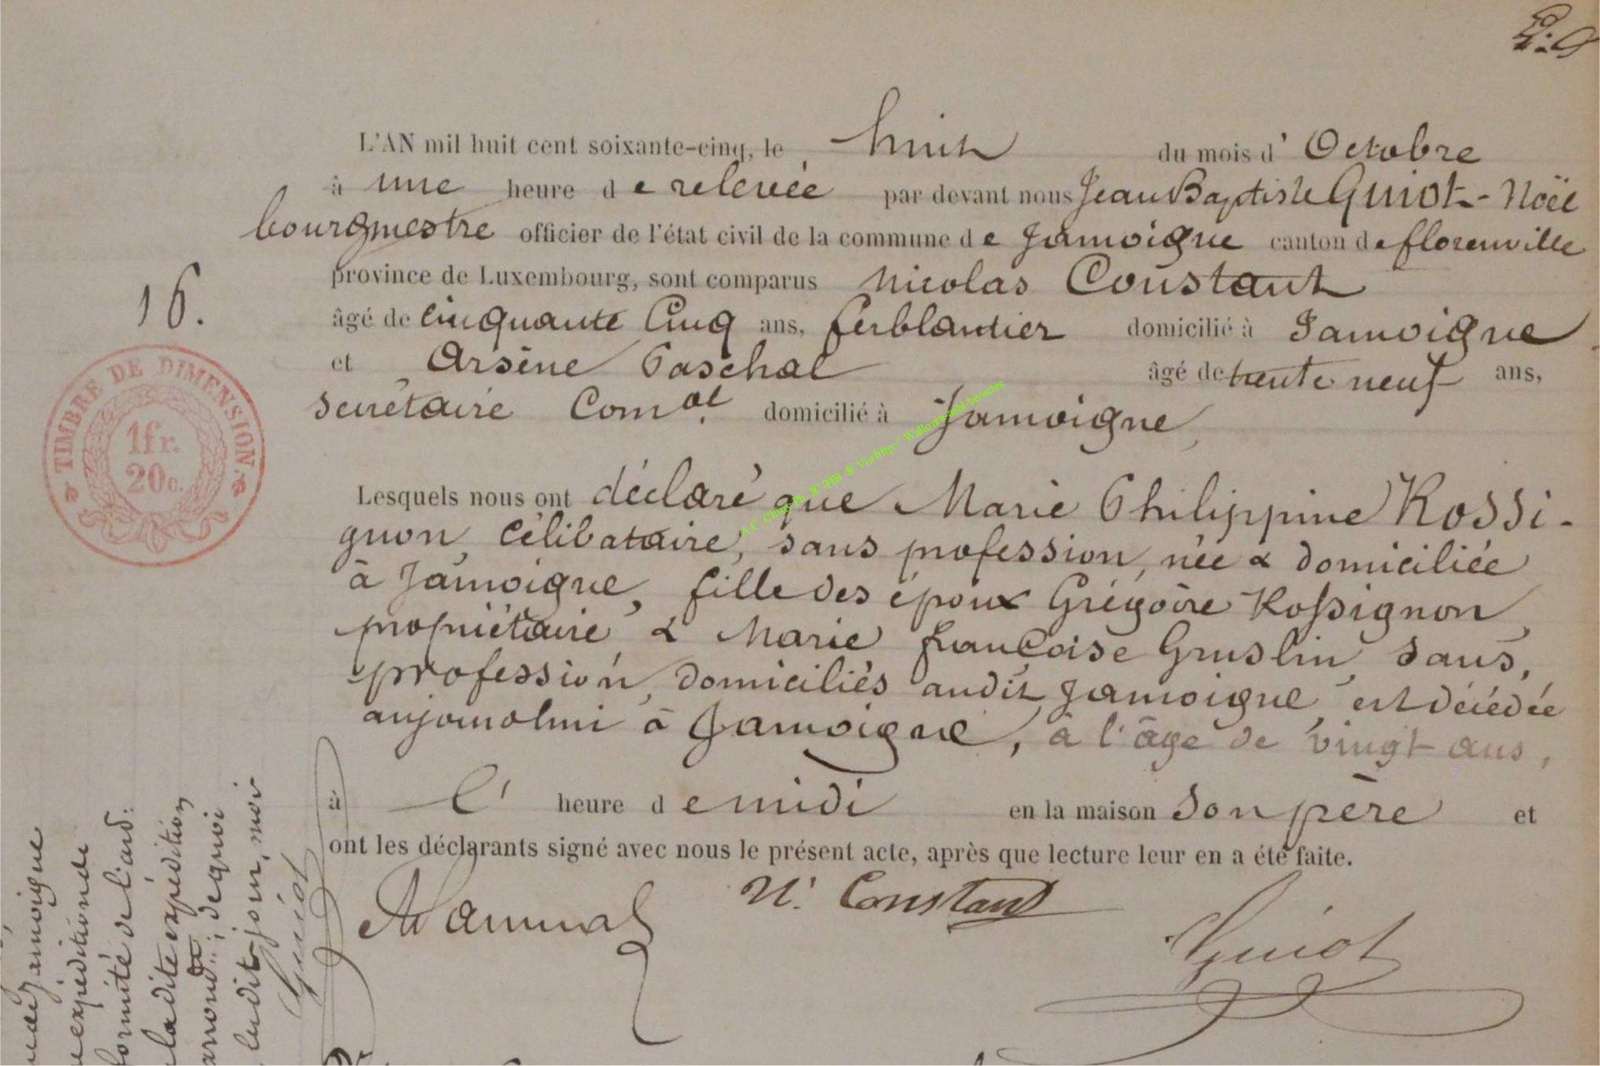 L'AN mil huit cent soixante-cinq, le huit du mois d'Octobre
à une heure de relevée par devant nous Jean Baptiste Guiot-Noël
bourgmestre officier de l'état civil de la commune de Jamoigne canton de florenville
province de Luxembourg, sont comparus Nicolas Constant
âgé de cinquante Cinq ans, ferblantier domicilié à Jamoigne
et Arsène Paschal âgé de trente neuf ans,
secrétaire Com.al domicilié à Jamoigne,
Lesquels nous ont déclaré que Marie Philippine Rossi-
gnon, célibataire, sans profession, née & domiciliée
à Jamoigne, fille des époux Grégoire Rossignon,
propriétaire, & Marie françoise Gruslin, sans,
profession, domiciliés audit Jamoigne, est décédée
aujourdhui à Jamoigne, à l'âge de vingt ans,
à l' heure de midi en la maison son père et
ont les déclarants signé avec nous le présent acte, après que lecture leur en a été faite.
N. Constant
Guiot
16.
TIMBRE DE DIMENSION
1fr.
20c.
Jamoigne
expédition de
formité de l'art:
la dite expédition
arrond: de quoi
ludit jour, moi
Guiot